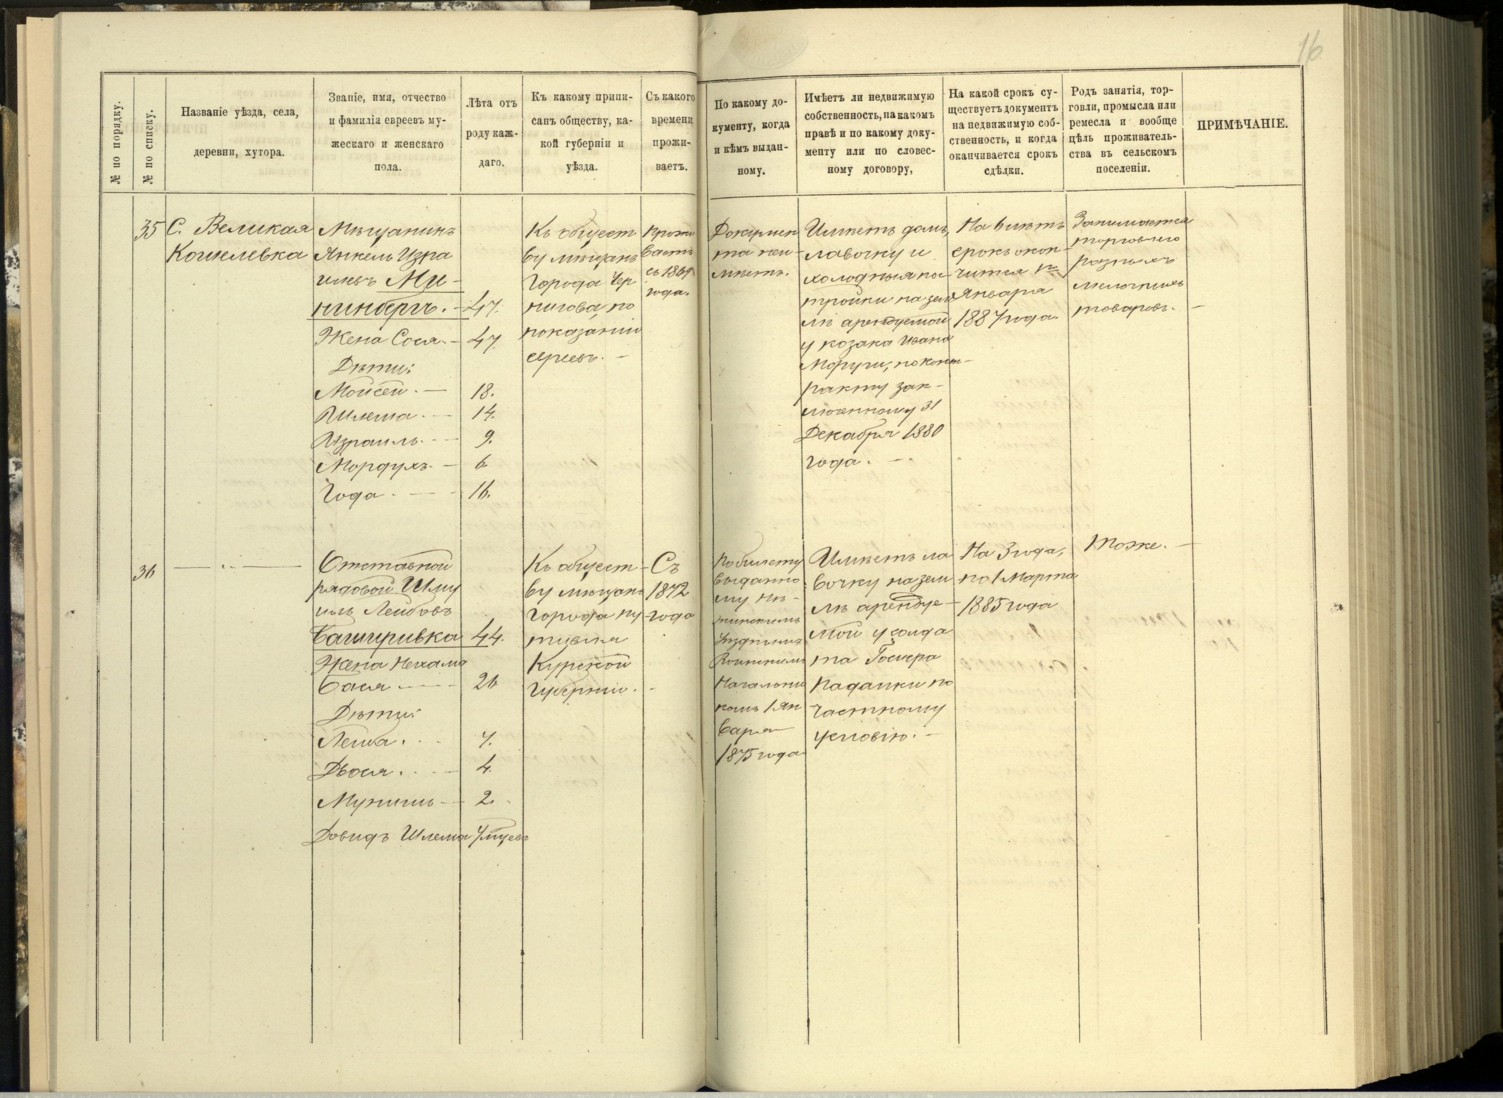 16
№ по порядку.
№ по списку.
Названіе уѣзда, села,
деревни, хутора.
Званіе, имя, отчество
и фамилія евреевъ му-
жескаго и женскаго
пола.
Лѣта отъ
роду каж-
даго.
Къ какому припи-
санъ обществу, ка-
кой губерніи и
уѣзда.
Съ какого
времени
прожи-
ваетъ.
По какому до-
кументу, когда
и кѣмъ выдан-
ному.
Имѣетъ ли недвижимую
собственность, на какомъ
правѣ и по какому доку-
менту или по словес-
ному договору,
На какой срокъ су-
ществуетъ документъ
на недвижимую соб-
ственность, и когда
оканчивается срокъ
сдѣлки.
Родъ занятія, тор-
говли, промысла или
ремесла и вообще
цѣль проживатель-
ства въ сельскомъ
поселеніи.
ПРИМѢЧАНІЕ.
35
С. Великая
Кошелевка
Мѣщанинъ
Янкель Изра
илевъ Ми-
нинбергъ. - 47.
Жена Сося. - 47
Дѣти:
Мойсей. - 18.
Шлема. - 14.
Израиль. - 9.
Мордухъ. - 6
Года. - 16.
Къ общест
ву мѣщанъ
города Чер
нигова по
показанію
евреевъ. -
Прожи
ваетъ
съ 1869
года.
Докумен
та неи-
мѣетъ.
Имѣетъ домъ,
лавочку и
холодныя по
стройки на зем
лѣ арендуемой
у козака Ивана
по конт-
ракту зак-
люченному 31
Декабря 1880
года. -
На 6 лѣтъ
срокъ окон
чится 1го
Января
1887 года.
Занимается
торговлею
разныхъ
мелочныхъ
товаровъ. -
36
— " —
Отставной
рядовой Шму
иль Лейбовъ
Баширивка 44.
Жена Нехама
Бася. — 26
Дѣти:
Лейба. - 7.
Двося. - 4.
2.
Довидъ Шлема
Къ общест
ву мѣщанъ
города Пу
тивля
Курской
губерніи. -
Съ
1872
года
По билету
выданно
му Нѣ-
жинскимъ
Уѣзднымъ
Воинскимъ
Начальни
комъ 1 Ян
варя
1875 года
Имѣетъ ла
вочку на зем
лѣ арендуе-
мой у солда
та
по
частному
условію. -
На 3 года,
по 1 Марта
1885 года
Тоже. -